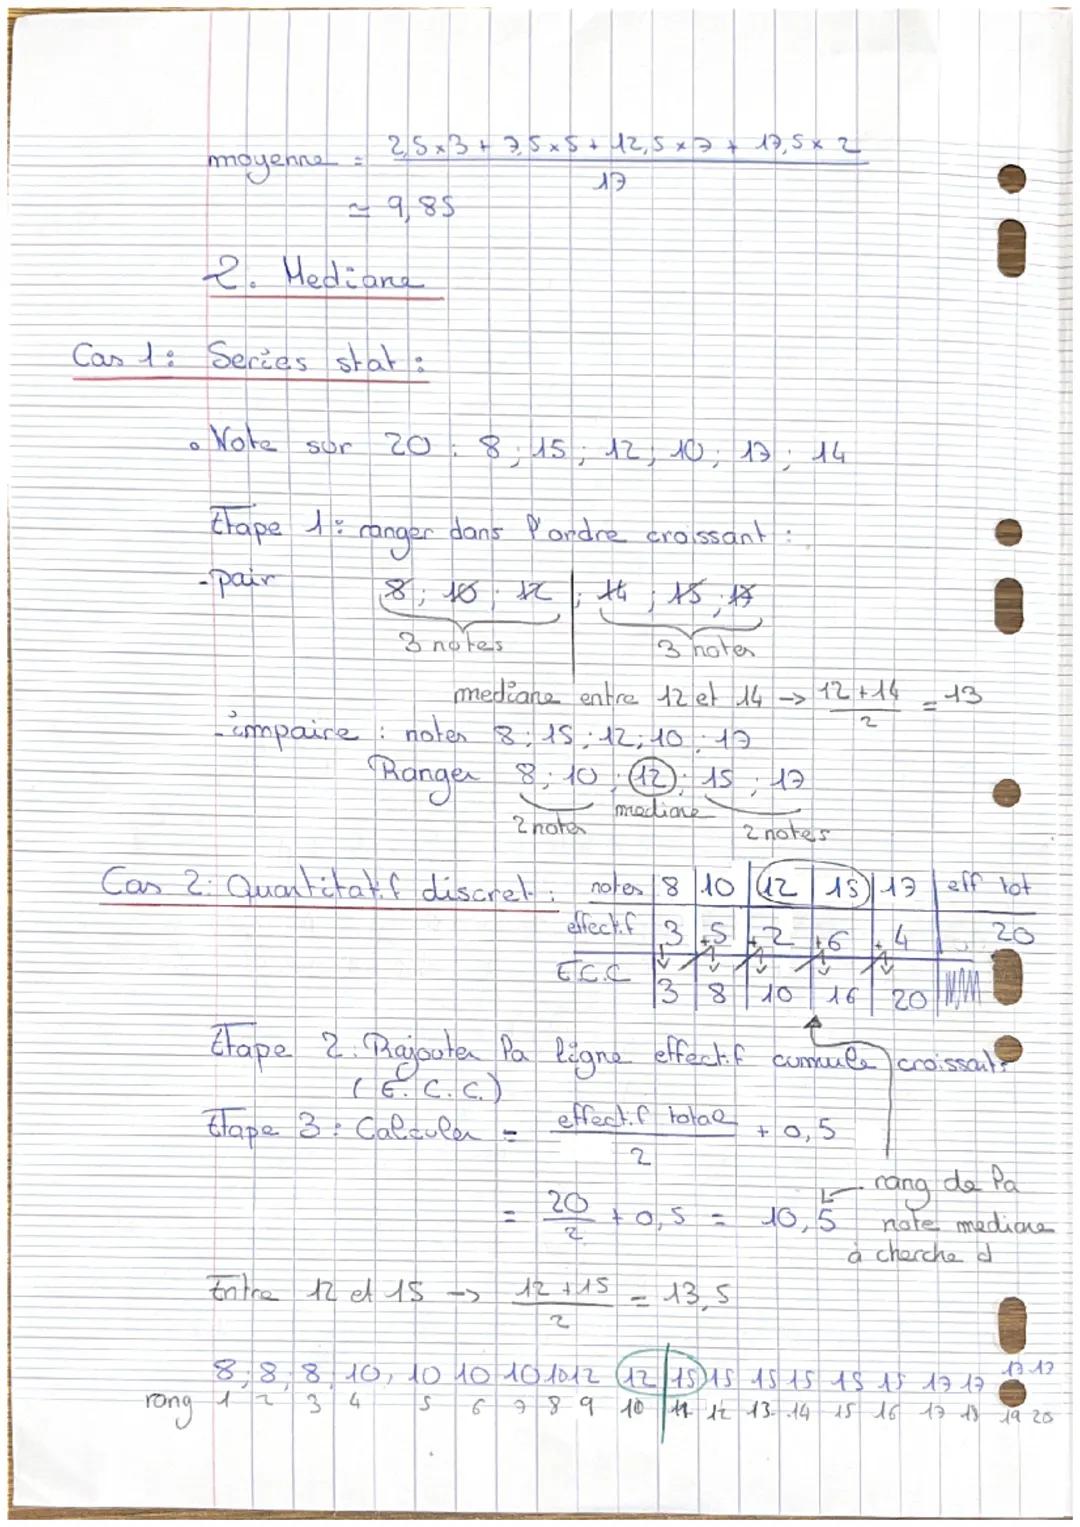 moyenne = (2,5 x 3 + 7,5 x 5 + 12,5 x 7 + 17,5 x 2) / 17
≃ 9,85
2. Mediane
Cas 1 : Series stat :
• Note sur 20 : 8 ; 15 ; 12 ; 10 ; 17 ; 14
Etape 1 : ranger dans l'ordre croissant :
- pair 8 ; 10 ; 12 | ; 14 ; 15 ; 17
3 notes 3 notes
mediane entre 12 et 14 -> (12 + 14) / 2 = 13
- impaire : notes 8 ; 15 ; 12 ; 10 ; 17
Ranger 8 ; 10 ; 12 ; 15 ; 17
2 notes mediane 2 notes
Cas 2 : Quantitatif discret : notes 8 10 12 15 17 eff tot
effectif 3 +5 +2 +6 +4 20
E.C.C 3 8 10 16 20
Etape 2 : Rajouter la ligne effectif cumule croissants
(E.C.C.)
Etape 3 : Calculer = effectif total / 2 + 0,5
= 20 / 2 + 0,5 = 10,5 rang de la
note mediane
à cherche
Entre 12 et 15 -> (12 + 15) / 2 = 13,5
8, 8, 8, 10, 10 10 10 10 12 12 | 15 15 15 15 15 15 17 17 17 17
rang 1 2 3 4 5 6 7 8 9 10 11 12 13 14 15 16 17 18 19 20